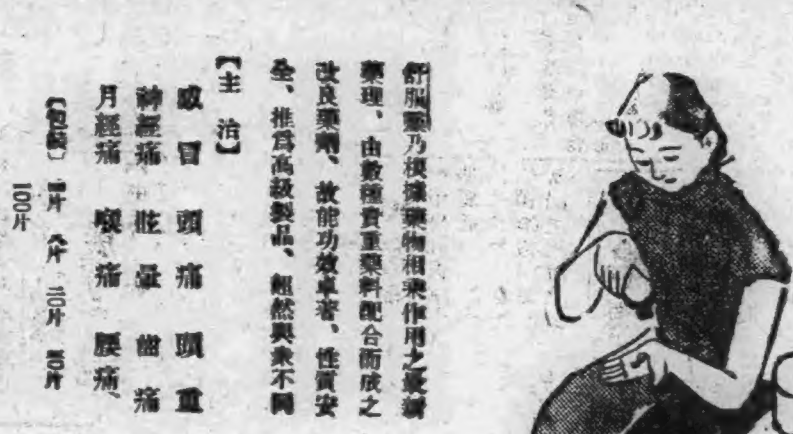 舒腦靈乃根據藥物相乘作用之最新
藥理、由數種貴重藥料配合而成之
改良藥劑、故能功效卓著、性質安
全、推爲高級製品、迥然與衆不同
【主治】
感冒 頭痛 頭重
神經痛 眩暈 齒痛
月經痛 喉痛 腰痛、
【包裝】 片 八片 二〇片 五〇片
一〇〇片